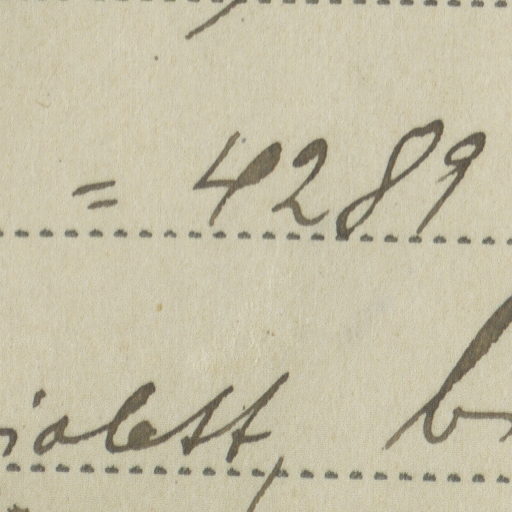 = 4289
iolett,